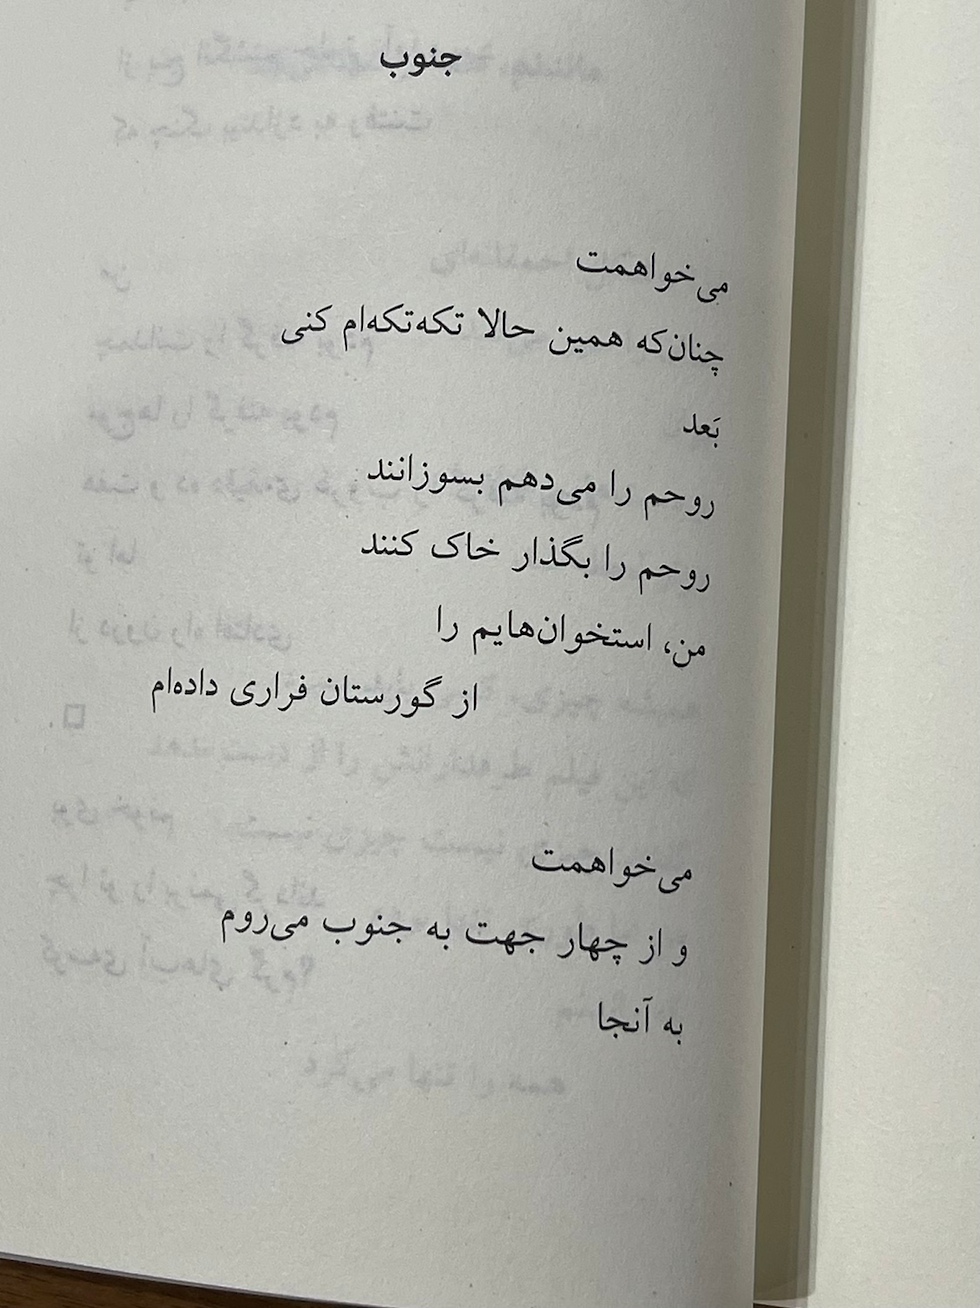 جنوب
می‌خواهمت
چنان‌که همین حالا تکه‌تکه‌ام کنی
بَعد
روحم را می‌دهم بسوزانند
روحم را بگذار خاک کنند
من، استخوان‌هایم را
از گورستان فراری داده‌ام
می‌خواهمت
و از چهار جهت به جنوب می‌روم
به آنجا